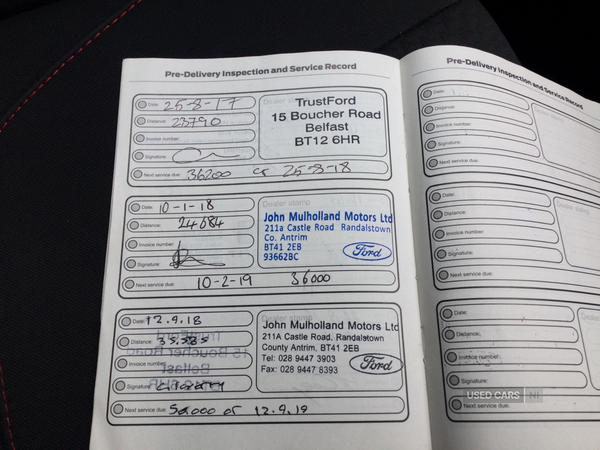 Pre-Delivery Inspection and Service Record
Date: 25-8-17
Distance: 23790
Invoice number:
Signature:
Next service due: 36200 or 25-8-18
Dealer
TrustFord
15 Boucher Road
Belfast
BT12 6HR
Date: 10-1-18
Distance: 24684
Invoice number:
Signature:
Next service due: 10-2-19 36000
Dealer stamp
John Mulholland Motors Ltd
211a Castle Road Randalstown
Co. Antrim
BT41 2EB
93662BC
Ford
Date: 12.9.18
Distance: 35,585
Invoice number:
Signature:
Next service due: 50,000 or 12.9.19
Dealer stamp
John Mulholland Motors Ltd
211A Castle Road, Randalstown
County Antrim, BT41 2EB
Tel: 028 9447 3903
Fax: 028 9447 8393
Ford
Pre-Delivery Inspection and Service Record
Date:
Distance:
Invoice number:
Signature:
Next service due:
Date:
Distance:
Invoice number:
Signature:
Next service due:
Date:
Distance:
Invoice number:
Signature:
Next service due:
USED CARS NI